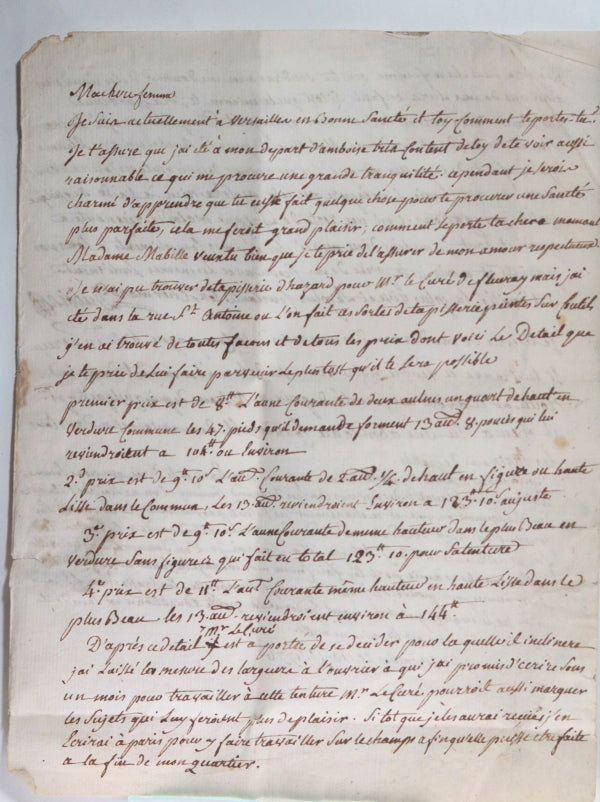 Ma chere femme
Je suis actuellement à Versailles en bonne Santé et toy Comment te portes-tu?
Je t'assure que j'ai eté a mon depart d'amboise très Content de toy de te voir aussi
raisonnable ce qui me procure une grande tranquilité. cependant je serois
charmé d'apprendre que tu eusse fait quelque chose pour te procurer une Santé
plus parfaite, cela me feroit grand plaisir; comment se porte ta chere maman
Madame Mabille veux tu bien que je te prie de l'assurer de mon amour respectueux.
Je n'ai pu trouver de tapisserie d'hazard pour Mr. le Curé de fleuray mais j'ai
eté dans la rue St. Antoine ou l'on fait ces Sortes de tapisserie peintes Sur Coutil,
j'en ai trouvé de toutes facons et de tous les prix dont voici Le Detail que
je te prie de Lui faire parvenir Le plustost qu'il te Sera possible
premier prix est de 8tt. L'aune Courante de deux aulnes un quart de haut en
Verdure Commune les 47. pieds qu'il demande forment 13 aun. 8. pouces qui lui
reviendroient a 104tt ou Environ
2.d prix est de 9tt. 10s. L'aun. Courante de 2 aun. 1/4 de haut en figure ou haute
Lisse dans le Commun, Les 13. aun. reviendroient Environ a 123tt. 10s. au juste
3e. prix est de 9tt. 10s. L'aune Courante de meme hauteur dans le plus Beau en
Verdure Sans figures qui fait en total 123tt 10. pour Sa tenture
4e. prix est de 11tt. L'aun. Courante même hauteur en haute Lisse dans le
plus Beau les 13. aun. reviendroient environ à 144tt
Mr Le Curé
D'après ce detail est a portée de se decider pour la quelle il inclinera
j'ai Laissé les mesures des largeurs à l'ouvrier à qui j'ai promis d'ecrire Sous
un mois pour travailler à cette tenture Mr. Le Curé pourroit aussi marquer
les Sujets qui Luy feroient plus de plaisir. Si tot que je les aurai reçues j'en
Ecrirai à paris pour y faire travailler Sur le champ afin qu'elle puisse etre faite
a la fin de mon quartier.